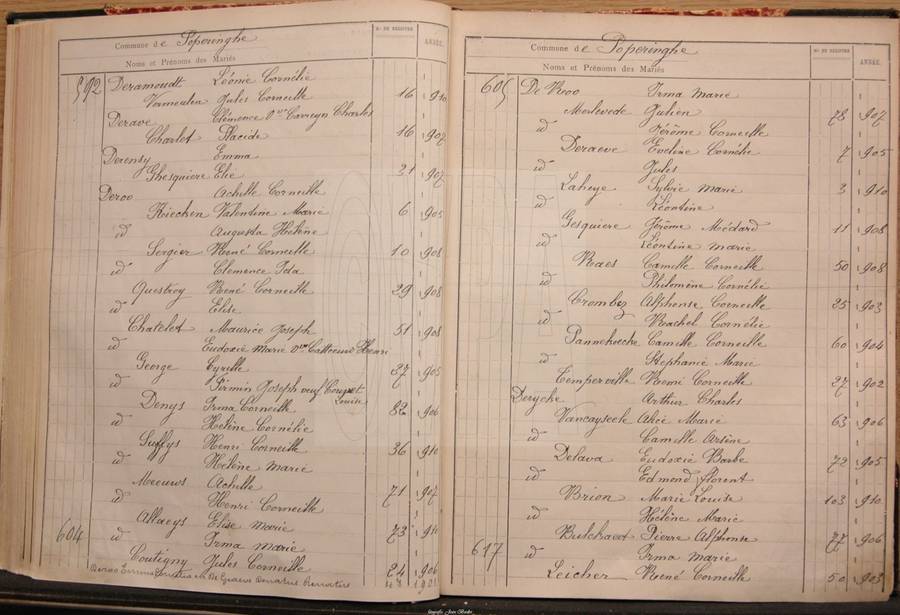 Commune de Poperinghe
Nos DE REGISTRE
ANNÉE.
Noms et Prénoms des Mariés
592 Deramoudt Léonie Cornélie
Vermeulen Jules Corneille 16 1910
Derave Clémence Vve Cavreyn Charles
Charlet Placide 16 1907
Derensy Emma
Ghesquiere Elie 21 1907
Deroo Achille Corneille
Riechen Valentine Marie 6 1905
id Augusta Hélène
Sergier René Corneille 10 1908
id Clemence Ida
Questroy René Corneille 29 1908
id Elise
Chatelet Maurice Joseph 51 1908
id Eudoxie Marie Vve Henri
George Cyrille 27 1905
id Firmin Joseph veuf Louise
Denys Irma Corneille 82 1906
id Hélène Cornélie
Suffys Henri Corneille 36 1910
id Hélène Marie
Meeuws Achille 71 1907
id Henri Corneille
Allaeys Elise Marie 73 1910
604 id Irma Marie
Coutigny Jules Corneille 24 1906
Commune de Poperinghe
Nos DE REGISTRE
ANNÉE.
Noms et Prénoms des Mariés
605 De Roo Irma Marie
Merlevede Julien 78 1907
id Jérôme Corneille
Deraeve Eveline Cornélie 7 1905
id Jules
Laheye Sylvie Marie 3 1910
id Léontine
Gesquiere Jérôme Médard 11 1908
id Léontine Marie
Raes Camille Corneille 50 1908
id Philomène Cornélie
Crombez Alphonse Corneille 25 1903
id Rachel Cornélie
Pannehecke Camille Corneille 60 1904
id Stephanie Marie
Temperville Remi Corneille 27 1902
Derycke Arthur Charles
Vancayseele Alice Marie 63 1906
id Camille Arsène
Delava Eudoxie Barbe 72 1905
id Edmond Florent
Brion Marie Louise 103 1910
id Hélène Marie
Bulckaert Pierre Alphonse 77 1906
617 id Irma Marie
Leicher René Corneille 50 1903